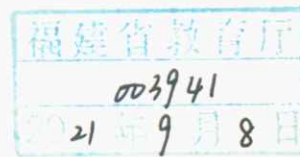 福建省教育厅
003941
2021年9月8日